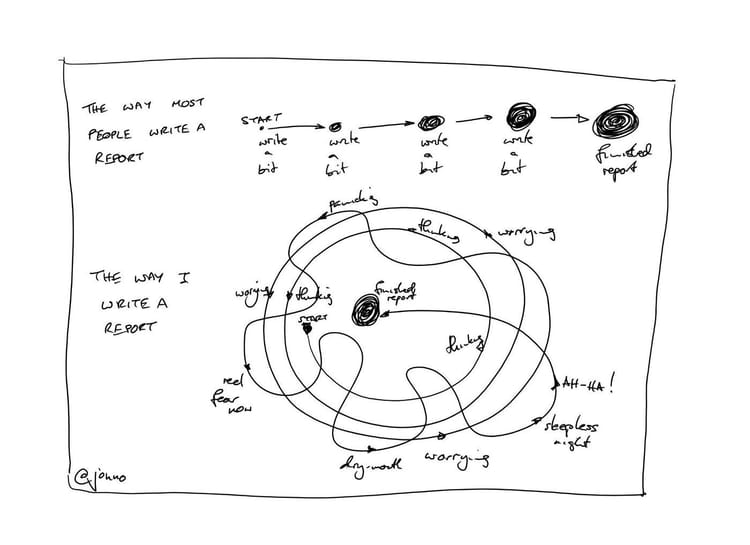 THE WAY MOST
PEOPLE WRITE A
REPORT
START
write
a
bit
write
a
bit
write
a
bit
write
a
bit
finished
report
THE WAY I
WRITE A
REPORT
panicking
thinking
worrying
worrying
thinking
START
finished
report
thinking
real
fear
now
dry-mouth
worrying
sleepless
night
AH-HA!
@jonno